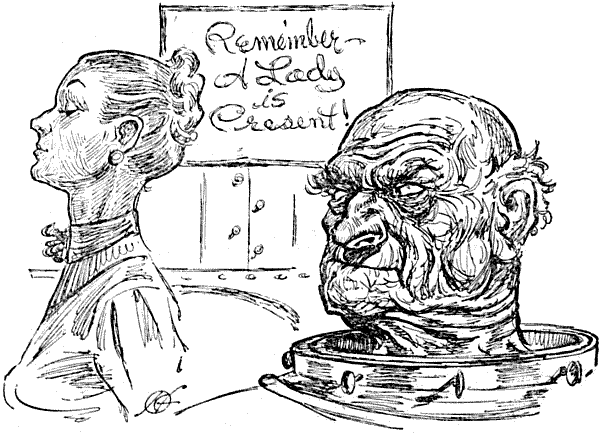 Remember—
A Lady
is
Present!